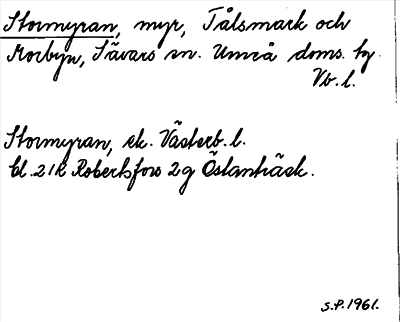 Stormyran, myr, Tålsmark och
Norbyn, Sävars sn. Umeå doms. tg.
Vb. l.
Stormyran, ek. Västerb. l.
bl. 21K Robertsfors 2g Östanträsk.
S.P. 1961.